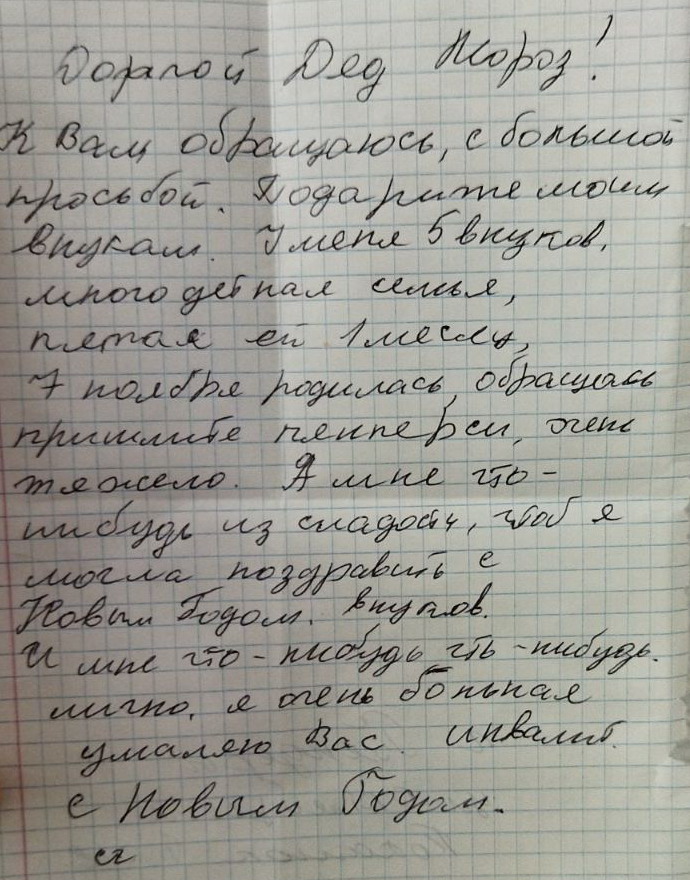 Дорагой Дед Мороз!
К Вам обращаюсь, с большой
просьбой. Подарите моим
внукам. У меня 5 внуков,
многодетная семья,
пятая ей 1 месяц,
7 ноября родилась, обращаюсь
пришлите пемперсы, очень
тяжело. А мне что-
нибудь из сладости, чтоб я
могла поздравить с
Новым Годом. внуков.
И мне что-нибудь что-нибудь.
лично, я очень больная
умаляю Вас. инвалит.
С Новым Годом.